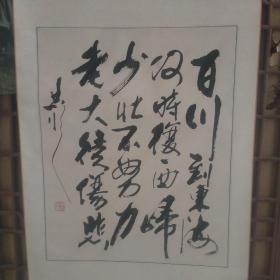 百川到東海
何時復西歸
少壮不努力
老大徒傷悲